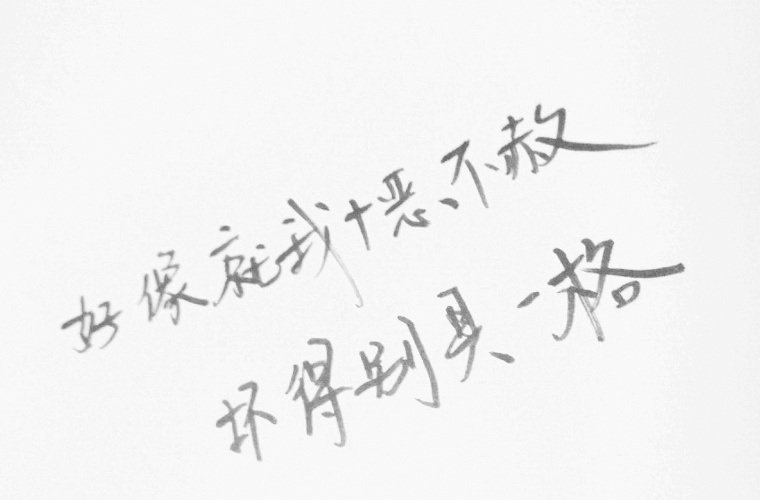 好像就我十恶不赦
坏得别具一格